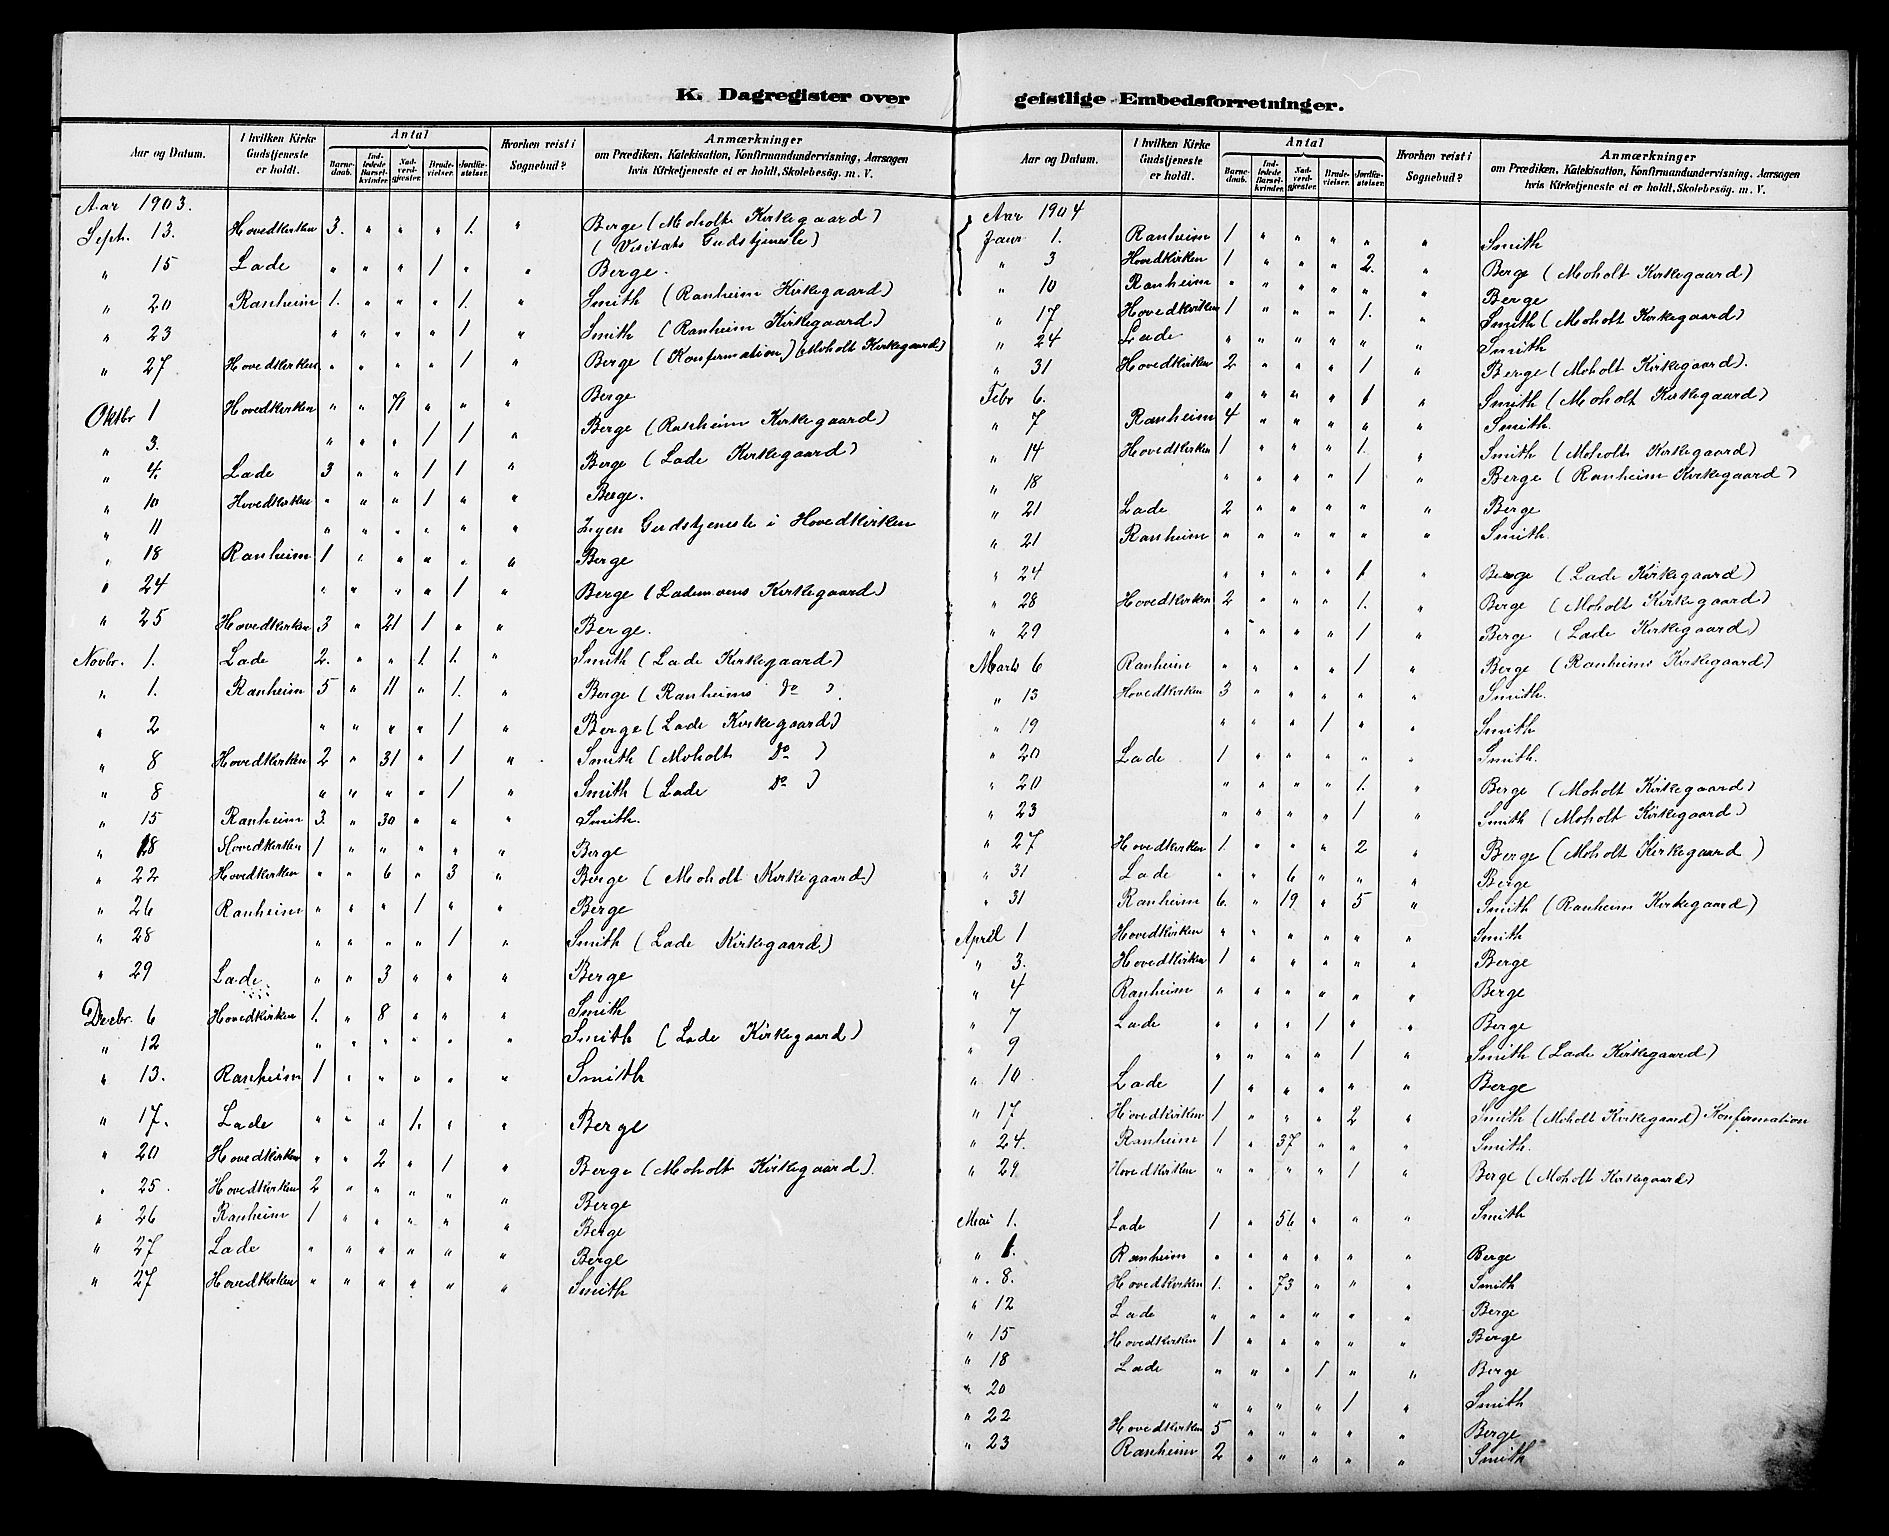 K. Dagregister over geistlige Embedsforretninger.
Aar og Datum. | I hvilken Kirke Gudstjeneste er holdt. | Antal | Barnedaab. | Indledede Barselkvinder. | Nadverdgjester. | Brudevielser. | Jordfæstelser. | Hvorhen reist i Sognebud? | Anmærkninger om Prædiken, Katekisation, Konfirmandundervisning, Aarsagen hvis Kirketjeneste ei er holdt, Skolebesøg. m. V.
Aar 1903.
Septr. 13. Hovedkirken 3. " " " 1. " Berge (Moholt Kirkegaard)
(Visitats Gudstjeneste)
" 15 Lade " " " 1 " " Berge.
" 20 Ranheim 1. " " " 1. " Smith (Ranheim Kirkegaard)
" 23 " " " " 1 " Smith (Ranheim Kirkegaard)
" 27 Hovedkirken " " " " 1 " Berge (Konfirmation) (Moholt Kirkegaard)
Oktbr 1 Hovedkirken " " 71 " " " Berge
" 3. " " " 1 1 " Berge (Ranheim Kirkegaard)
" 4. Lade 3 " " 1 1 " Berge (Lade Kirkegaard)
" 10 Hovedkirken " " " 1 " " Berge.
" 11 " " " " " " Ingen Gudstjeneste i Hovedkirken
" 18 Ranheim 1 " " " " " Berge
" 24 " " " " 1 " Berge (Lademoens Kirkegaard)
" 25 Hovedkirken 3 " 21 1 " " Berge.
Novbr. 1. Lade 2. " " 1. 1. " Smith (Lade Kirkegaard)
" 1. Ranheim 5 " 11 " 1. " Berge (Ranheims do )
" 2 " " " " 1 " Berge (Lade Kirkegaard)
" 8 Hovedkirken 2 " 31 " 1 " Smith (Moholts do )
" 8 " " " " 1 " Smith (Lade do )
" 15 Ranheim 3. " 30 " " " Smith.
" 18 Hovedkirken 1 " " " " " Berge
" 22 Hovedkirken " " 6 " 3 " Berge (Moholt Kirkegaard)
" 26 Ranheim " " " 1 " " Berge
" 28 " " " " 1 " Smith (Lade Kirkegaard)
" 29 Lade. " " 3 " " " Berge
Decbr. 6 Hovedkirken 1. " 8 " " " Smith
" 12 " " " " " " Smith (Lade Kirkegaard)
" 13. Ranheim 1 " " " " " Smith
" 17. Lade " " " 1. " " Berge
" 20 Hovedkirken " " 2 " 1 " Berge (Moholt Kirkegaard).
" 25. Hovedkirken 2 " " " " " Berge
" 26 Ranheim 1 " " " " " Berge
" 27 Lade " " " " " " Berge
" 27 Hovedkirken " " " " " " Smith
Aar og Datum. | I hvilken Kirke Gudstjeneste er holdt. | Antal | Barnedaab. | Indledede Barselkvinder. | Nadverdgjester. | Brudevielser. | Jordfæstelser. | Hvorhen reist i Sognebud? | Anmærkninger om Prædiken, Katekisation, Konfirmandundervisning, Aarsagen hvis Kirketjeneste ei er holdt, Skolebesøg. m. V.
Aar 1904
Janr 1. Ranheim 1 " " " " " Smith
" 3 Hovedkirken 1 " " " 2. " Berge (Moholt Kirkegaard)
" 10 Ranheim " " " " " " Berge
" 17 Hovedkirken 1 " " " 1. " Smith (Moholt Kirkegaard)
" 24 Lade " " " " " " Smith
" 31 Hovedkirken 2 " " " 1 " Berge (Moholt Kirkegaard).
Febr 6. " " " " 1 " Smith (Moholt Kirkegaard)
" 7 Ranheim 4 " " " " " Smith.
" 14 Hovedkirken 1 " " " 1. " Smith (Moholt Kirkegaard)
" 18 " " " " 1 " Berge (Ranheim Kirkegaard)
" 21 Lade 2 " " " " " Berge
" 21 Ranheim " " " " " " Smith.
" 24 " " " " 1 " Berge (Lade Kirkegaard)
" 28 Hovedkirken 2 " " " 1. " Berge (Moholt Kirkegaard)
" 29 " " " " 1 " Berge (Lade Kirkegaard)
Marts 6 Ranheim " " " " 1 " Berge (Ranheims Kirkegaard)
" 13 Hovedkirken 3 " " " " " Smith.
" 19 " " " 1 " " Smith
" 20 Lade 1 " " " " " Smith.
" 20 " " " " 1. " Berge (Moholt Kirkegaard)
" 23 " " " " 1 " Smith (Moholt Kirkegaard)
" 27 Hovedkirken 1 " " " 2 " Berge (Moholt Kirkegaard)
" 31 Lade " " 6 " " " Berge
" 31 Ranheim 6. " 19 " 5 " Smith (Ranheim Kirkegaard)
April 1 Hovedkirken " " " " " " Smith
" 3. Hovedkirken 1 " " " " " Berge
" 4 Ranheim " " " " " " Berge
" 7 Lade " " " 1 " " Berge
" 9 " " " " 1 " Smith (Lade Kirkegaard)
" 10 Lade 1 " " " " " Berge
" 17 Hovedkirken 1 " " " 2 " Smith (Moholt Kirkegaard) Konfirmation
" 24. Ranheim 1 " 37 " " " Smith.
" 29 Hovedkirken " " " " 1 " Berge (Moholt Kirkegaard)
Mai 1. Lade 1 " 56 " " " Smith
" 1. Ranheim " " " " " " Berge
" 8. Hovedkirken 1. " 73 " " " Smith
" 12 Lade " " " " " " Berge
" 15 Hovedkirken 1 " " " " " Berge
" 18 Lade " " " 1 " " Berge
" 20 " " " " 1 " Smith
" 22 Hovedkirken 5 " " " " " Berge
" 23 Ranheim 2 " " " " " Smith